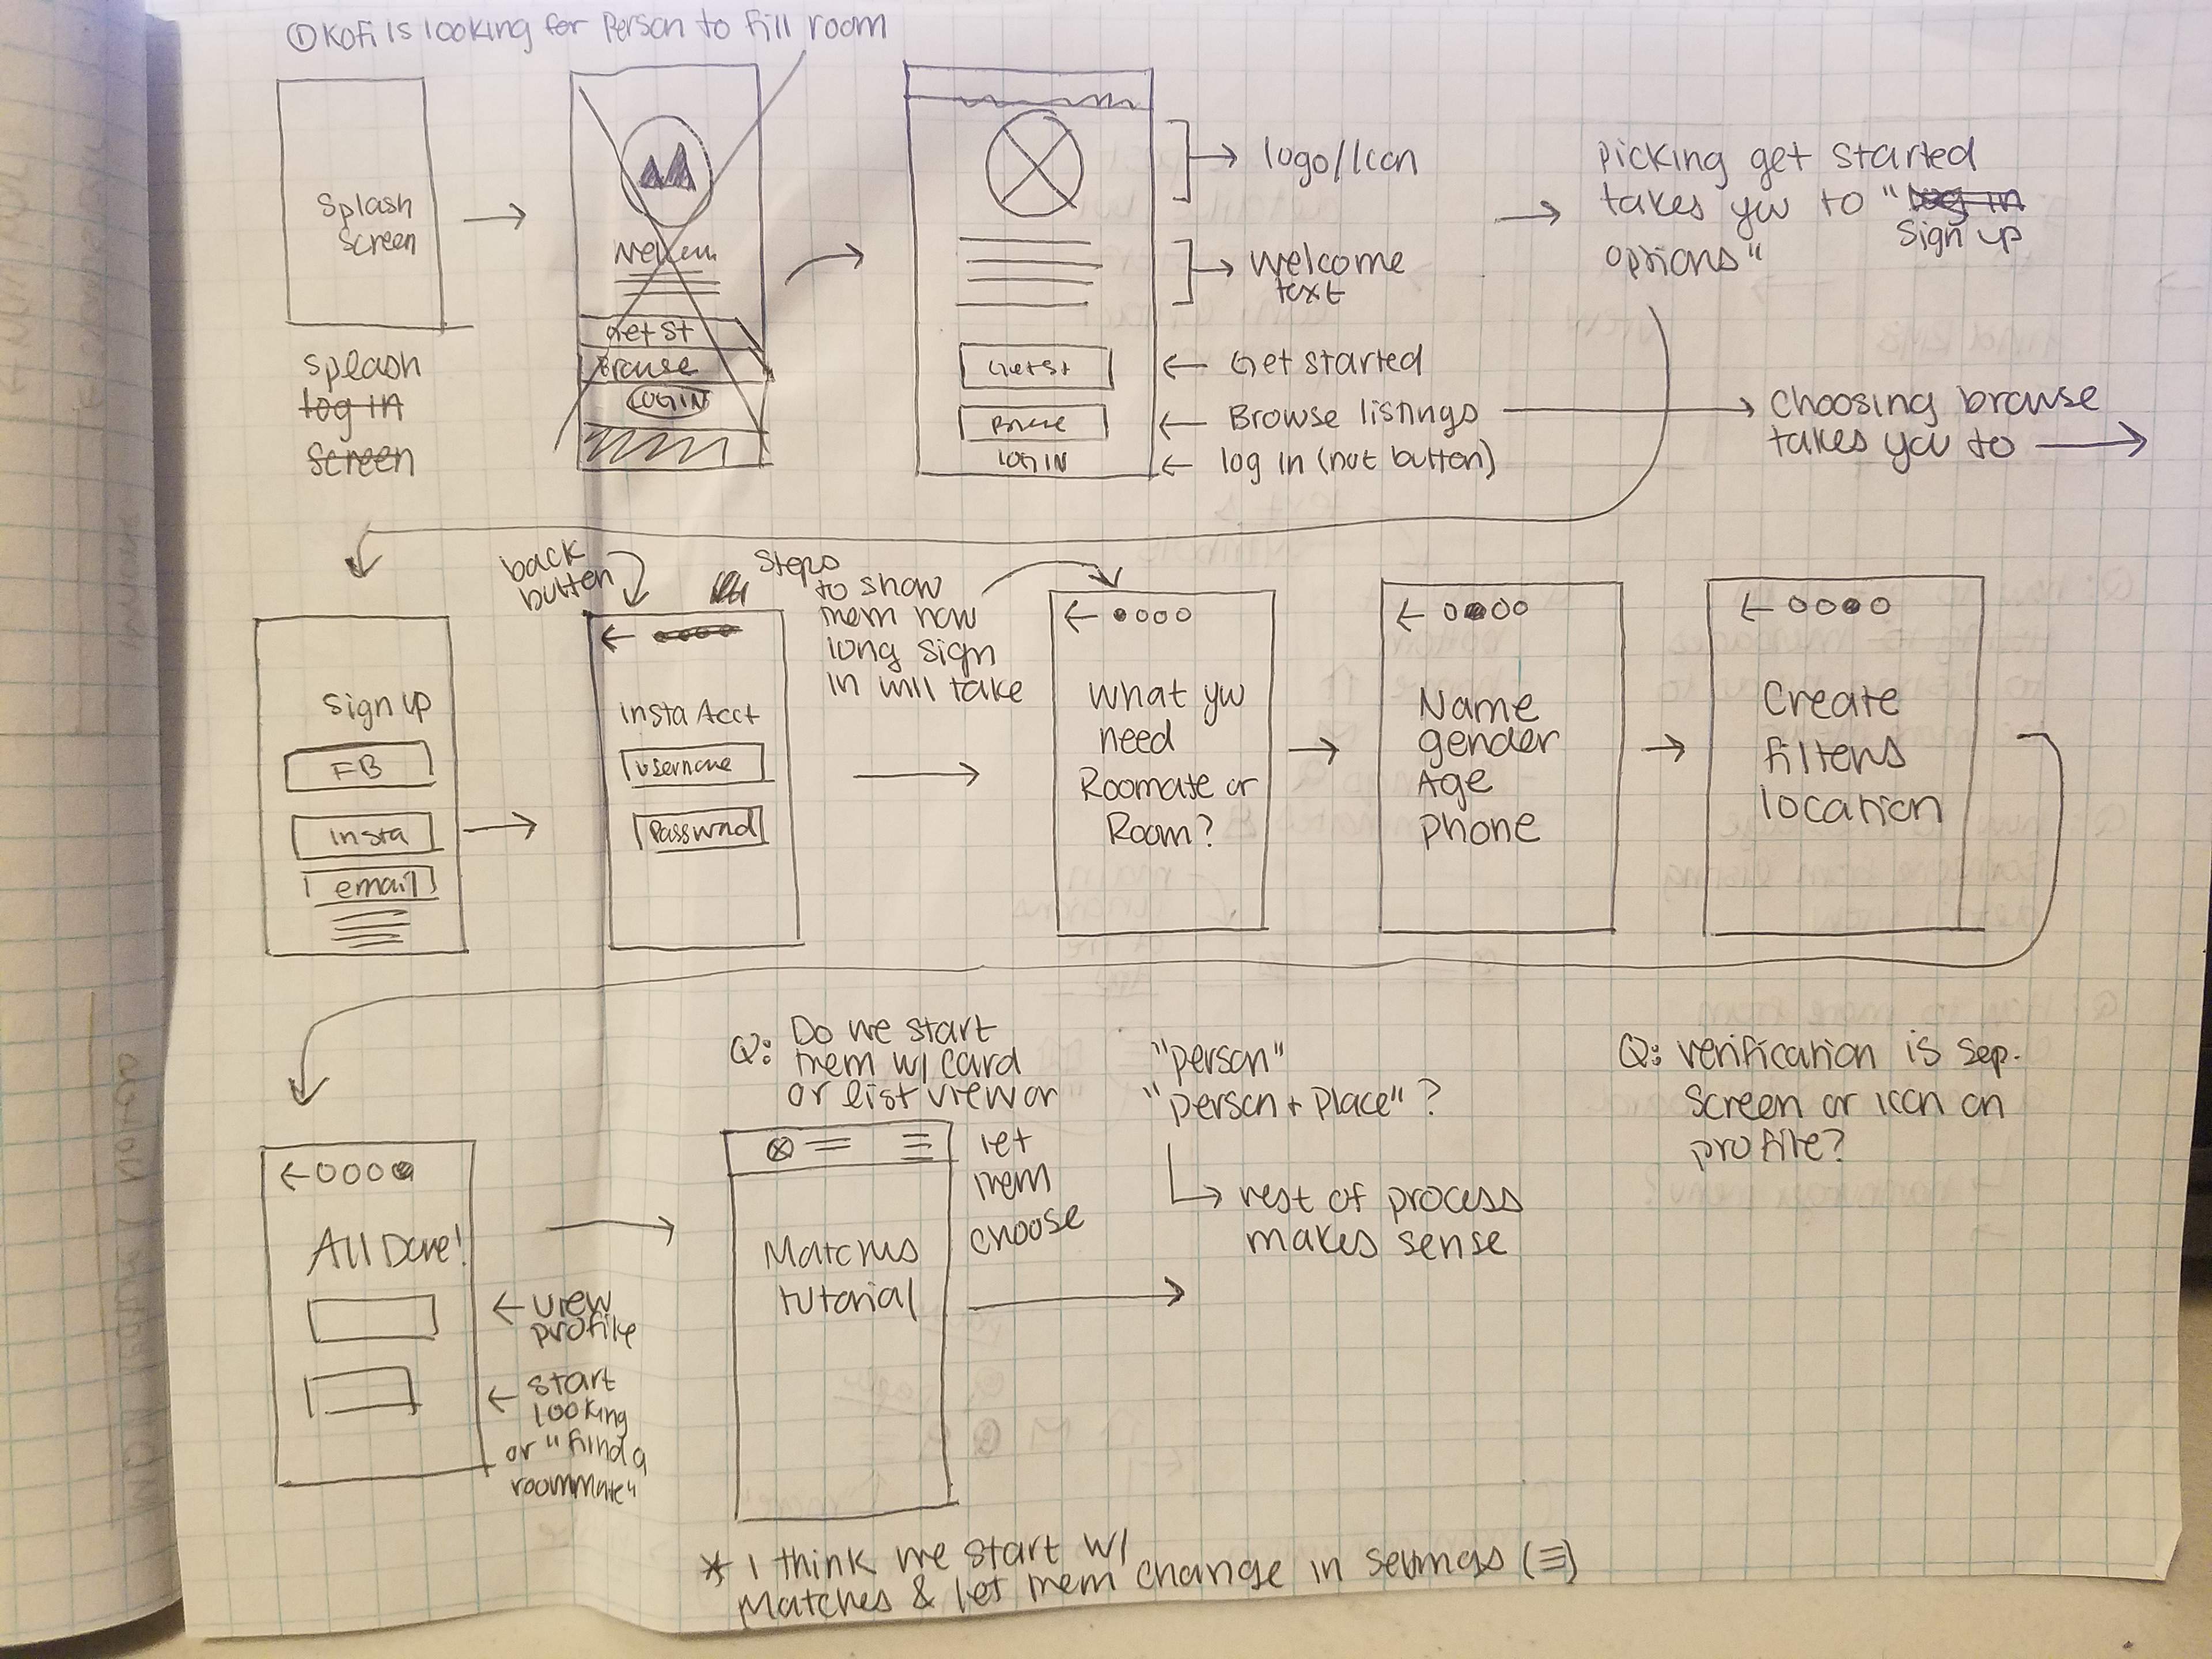 ① Kofi is looking for person to fill room
Splash
Screen
splash
log in
screen
Get St
Browse
LOGIN
logo/Icon
welcome
text
Get St
Get started
Browse listings
LOG IN
log in (not button)
picking get started
takes you to "log in
Sign up
options"
choosing browse
takes you to
back
button
Steps
to show
them how
long sign
in will take
Sign up
FB
Insta
email
insta Acct
username
Password
What you
need
Roomate or
Room?
Name
gender
Age
phone
Create
filters
location
All Done!
view
profile
start
looking
or "find a
roommate"
Q: Do we start
them w/ card
or list view or
let
them
choose
Matches
tutorial
"person"
"person + place"?
rest of process
makes sense
Q: verification is sep.
Screen or icon on
profile?
* I think we start w/
Matches & let them change in settings (≡)